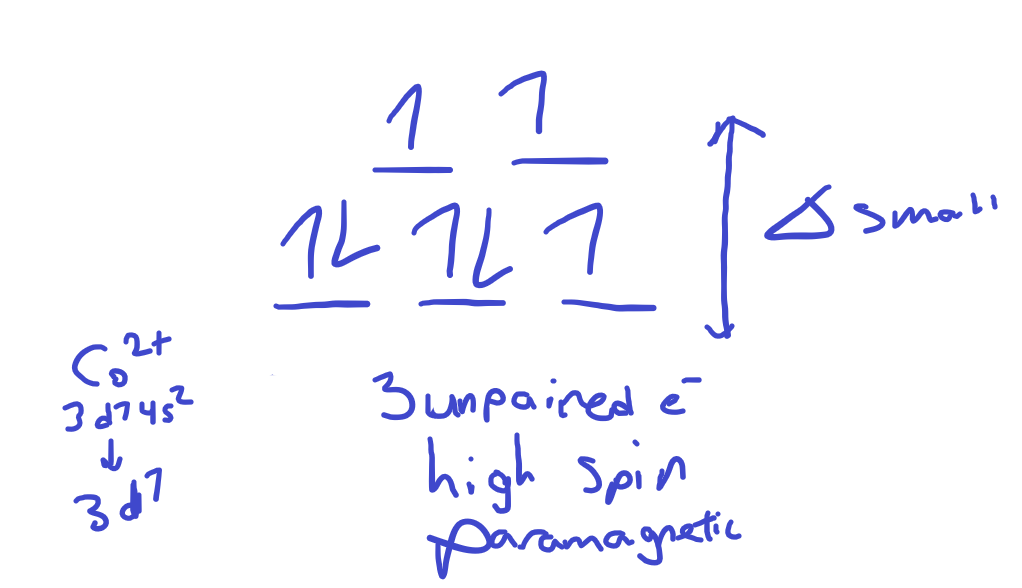 1 1
1↓ 1↓ 1
Δ small
Co²⁺
3d⁷4s²
↓
3d⁷
3 unpaired e⁻
high spin
paramagnetic